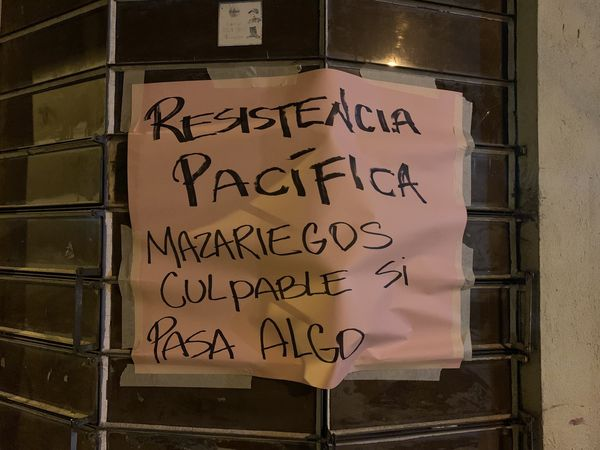 RESISTENCIA
PACÍFICA
MAZARIEGOS
CULPABLE SI
PASA ALGO